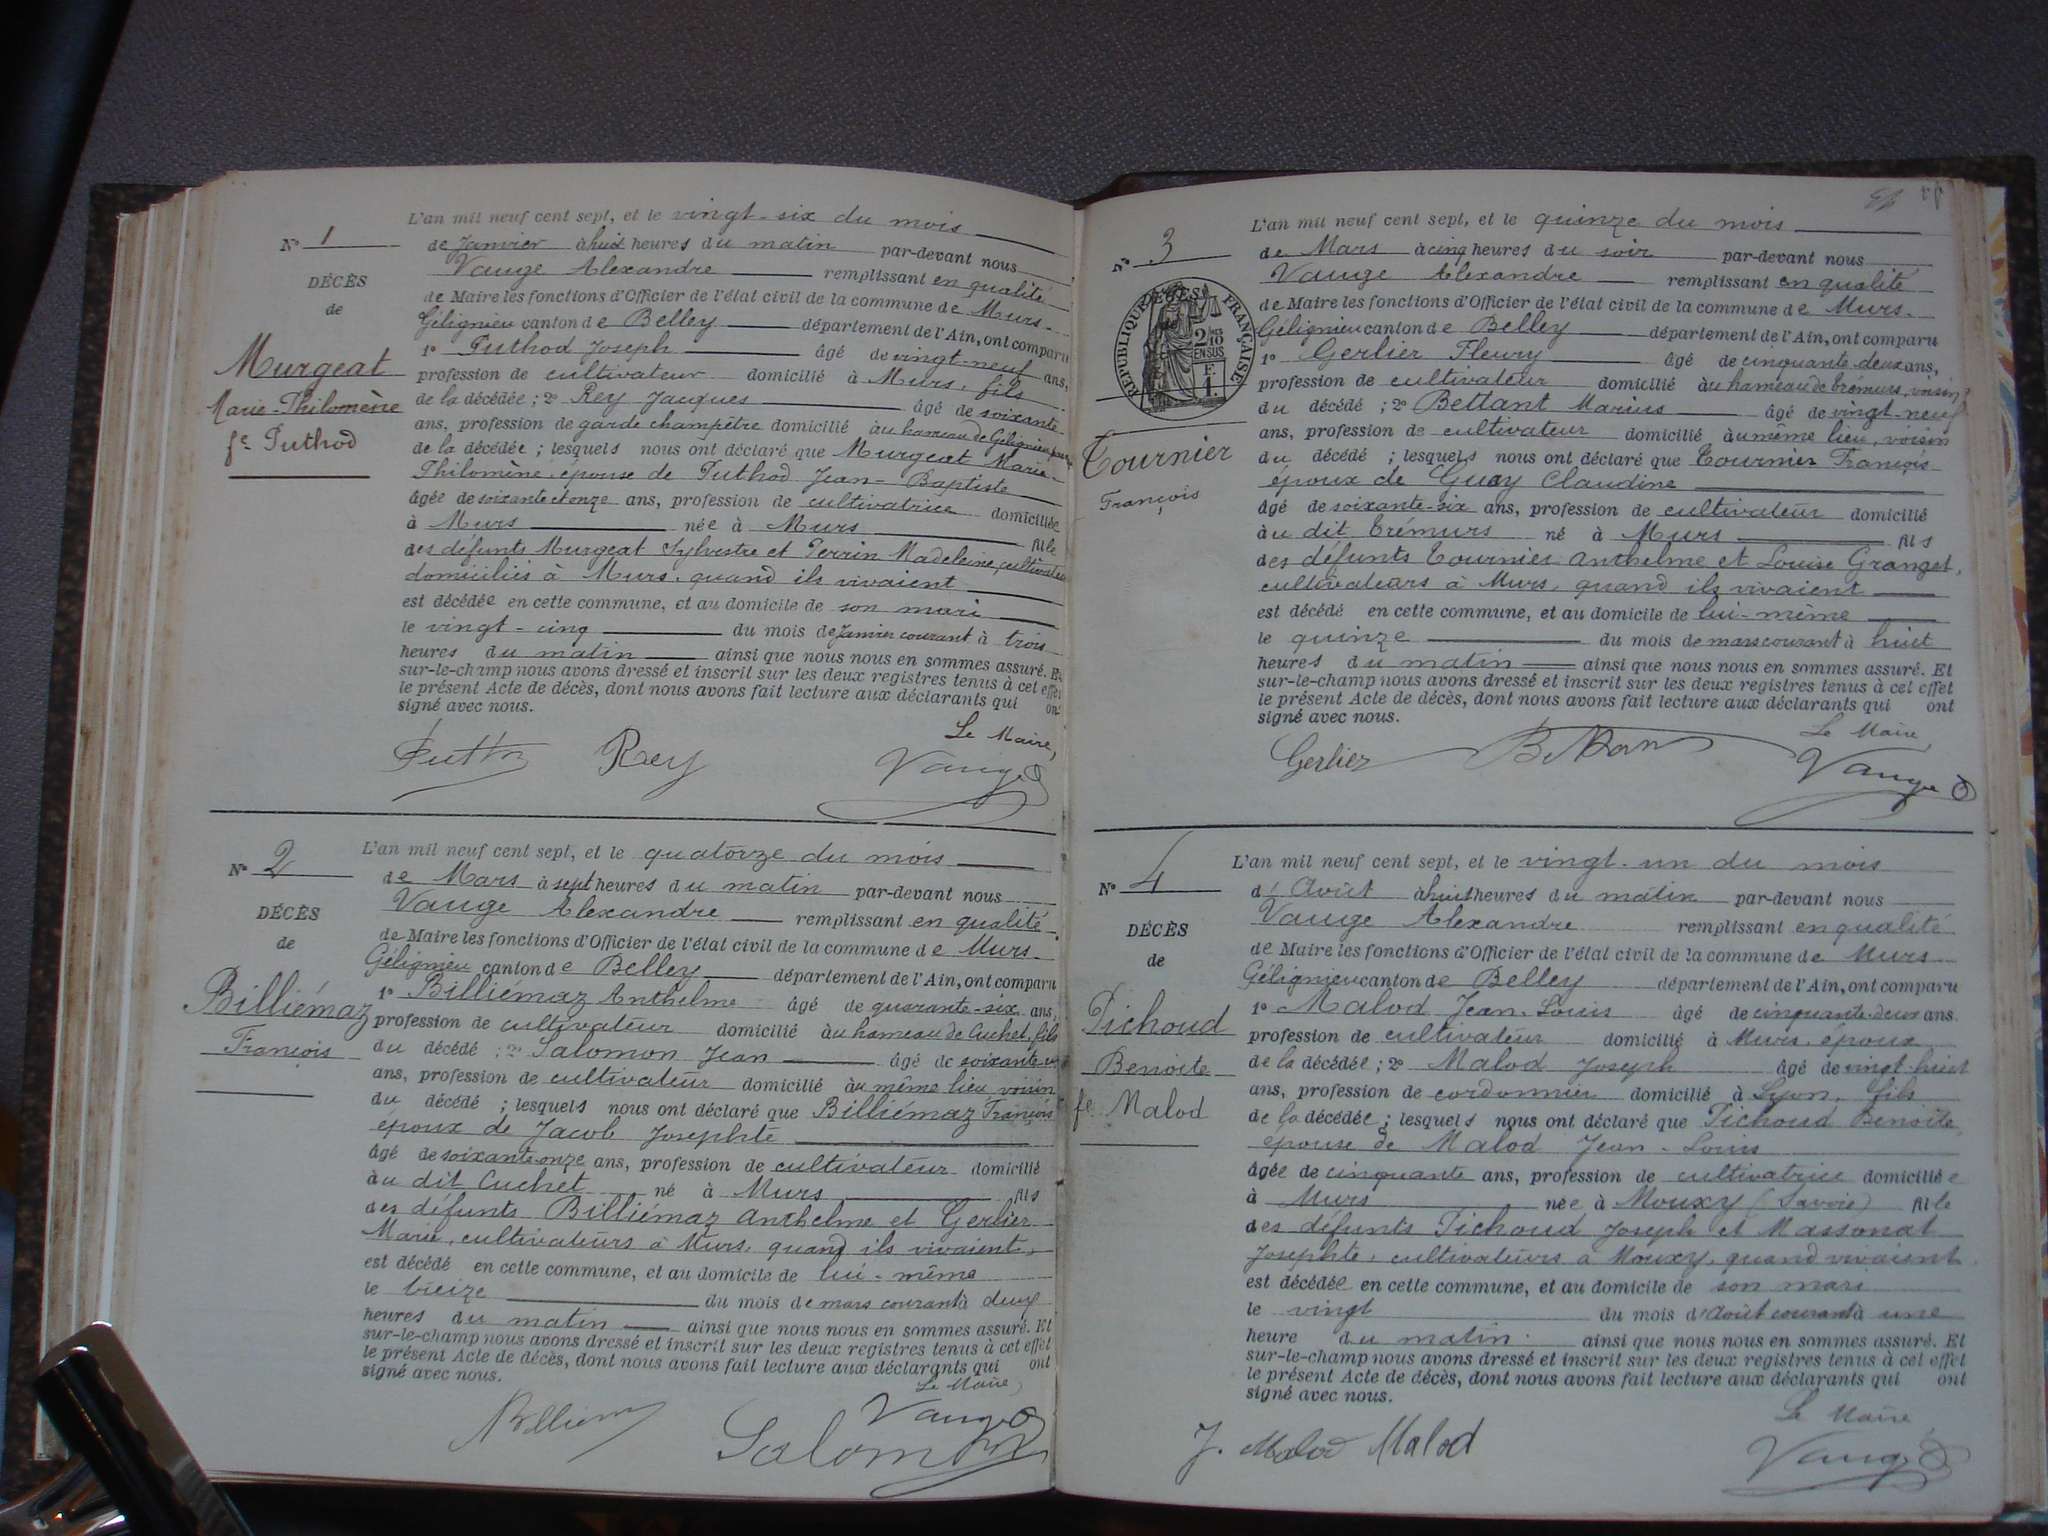 N° 1
DÉCÈS
de
Murgeat
Marie-Philomène
fe Puthod
L'an mil neuf cent sept, et le vingt-six du mois
de Janvier à huit heures du matin par-devant nous
Vauge Alexandre remplissant en qualité
de Maire les fonctions d'Officier de l'état civil de la commune de Murs-
Gélignieu canton de Belley département de l'Ain, ont comparu
1° Puthod Joseph âgé de vingt-neuf ans,
profession de cultivateur domicilié à Murs, fils
de la décédée ; 2° Rey Jacques âgé de soixante
ans, profession de garde champêtre domicilié au hameau de Gélignieu,
de la décédée ; lesquels nous ont déclaré que Murgeat Marie-
Philomène, épouse de Puthod Jean-Baptiste
âgée de soixante et onze ans, profession de cultivatrice domiciliée
à Murs née à Murs fille
des défunts Murgeat Sylvestre et Perrin Madeleine,
domiciliés à Murs, quand ils vivaient
est décédée en cette commune, et au domicile de son mari
le vingt-cinq du mois de Janvier courant à trois
heures du matin ainsi que nous nous en sommes assuré. Et
sur-le-champ nous avons dressé et inscrit sur les deux registres tenus à cet effet
le présent Acte de décès, dont nous avons fait lecture aux déclarants qui ont
signé avec nous.
Le Maire,
Rey Vauge
N° 2
DÉCÈS
de
Billiémaz
François
L'an mil neuf cent sept, et le quatorze du mois
de Mars à sept heures du matin par-devant nous
Vauge Alexandre remplissant en qualité
de Maire les fonctions d'Officier de l'état civil de la commune de Murs-
Gélignieu canton de Belley département de l'Ain, ont comparu
1° Billiémaz Anthelme âgé de quarante-six ans,
profession de cultivateur domicilié au hameau de Cuchet, fils
du décédé ; 2° Salomon Jean âgé de soixante
ans, profession de cultivateur domicilié au même lieu, voisin
du décédé ; lesquels nous ont déclaré que Billiémaz François
époux de Jacob Josephte
âgé de soixante-onze ans, profession de cultivateur domicilié
au dit Cuchet né à Murs fils
des défunts Billiémaz Anthelme et Gerlier
Marie, cultivateurs à Murs, quand ils vivaient,
est décédé en cette commune, et au domicile de lui-même
le treize du mois de mars courant à deux
heures du matin ainsi que nous nous en sommes assuré. Et
sur-le-champ nous avons dressé et inscrit sur les deux registres tenus à cet effet
le présent Acte de décès, dont nous avons fait lecture aux déclarants qui ont
signé avec nous.
Le Maire,
Vauge
Salomon
N° 3
RÉPUBLIQUE FRANÇAISE
2/10
EN SUS
F.
1.
Tournier
François
L'an mil neuf cent sept, et le quinze du mois
de Mars à cinq heures du soir par-devant nous
Vauge Alexandre remplissant en qualité
de Maire les fonctions d'Officier de l'état civil de la commune de Murs-
Gélignieu canton de Belley département de l'Ain, ont comparu
1° Gerlier Fleury âgé de cinquante-deux ans,
profession de cultivateur domicilié au hameau de Crémurs, voisin
du décédé ; 2° Bettant Marius âgé de vingt-neuf
ans, profession de cultivateur domicilié au même lieu, voisin
du décédé ; lesquels nous ont déclaré que Tournier François
époux de Guay Claudine
âgé de soixante-six ans, profession de cultivateur domicilié
au dit Crémurs né à Murs fils
des défunts Tournier Anthelme et Louise Granget,
cultivateurs à Murs, quand ils vivaient
est décédé en cette commune, et au domicile de lui-même
le quinze du mois de mars courant à huit
heures du matin ainsi que nous nous en sommes assuré. Et
sur-le-champ nous avons dressé et inscrit sur les deux registres tenus à cet effet
le présent Acte de décès, dont nous avons fait lecture aux déclarants qui ont
signé avec nous.
Le Maire,
Gerlier Vauge
N° 4
DÉCÈS
de
Pichoud
Benoite
fe Malod
L'an mil neuf cent sept, et le vingt-un du mois
d'Août à huit heures du matin par-devant nous
Vauge Alexandre remplissant en qualité
de Maire les fonctions d'Officier de l'état civil de la commune de Murs-
Gélignieu canton de Belley département de l'Ain, ont comparu
1° Malod Jean-Louis âgé de cinquante-deux ans
profession de cultivateur domicilié à Murs, époux
de la décédée ; 2° Malod Joseph âgé de vingt-huit
ans, profession de cordonnier domicilié à Lyon, fils
de la décédée ; lesquels nous ont déclaré que Pichoud Benoîte,
épouse de Malod Jean-Louis
âgée de cinquante ans, profession de cultivatrice domiciliée
à Murs née à Mouxy (Savoie) fille
des défunts Pichoud Joseph et Massonat
Josephte, cultivateurs à Mouxy, quand vivaient
est décédée en cette commune, et au domicile de son mari
le vingt du mois d'Août courant à une
heure du matin ainsi que nous nous en sommes assuré. Et
sur-le-champ nous avons dressé et inscrit sur les deux registres tenus à cet effet
le présent Acte de décès, dont nous avons fait lecture aux déclarants qui ont
signé avec nous.
Le Maire
J. Malod Malod Vauge